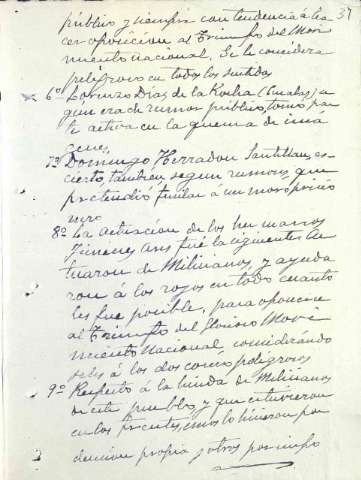 37
público y siempre con tendencia á ha
cer oposicion al Triunfo del Movi
miento nacional. Se le considera
peligroso en todos los sentidos
6º Lorenzo Dias de la Rocha
que era de rumor público, tomó par
te activa en la quema de imá
genes.
7º Domingo Herradon Santillan, es
cierto, tambien segun rumores, que
pretendió fusilar á un moro prisio
nero
8º La actuacion de los hermanos
Jimenes fué la siguiente Ac
tuaron de Milicianos, y ayuda
ron á los rojos en todo cuanto
les fue posible, para oponerse
al Triunfo del Glorioso Movi
miento Nacional considerándo
seles á los dos como peligrosos
9º Respecto á la huida de Milicianos
de este pueblo, y que estuvieron
en los frentes, unos lo hicieron por
decision propia y otros por